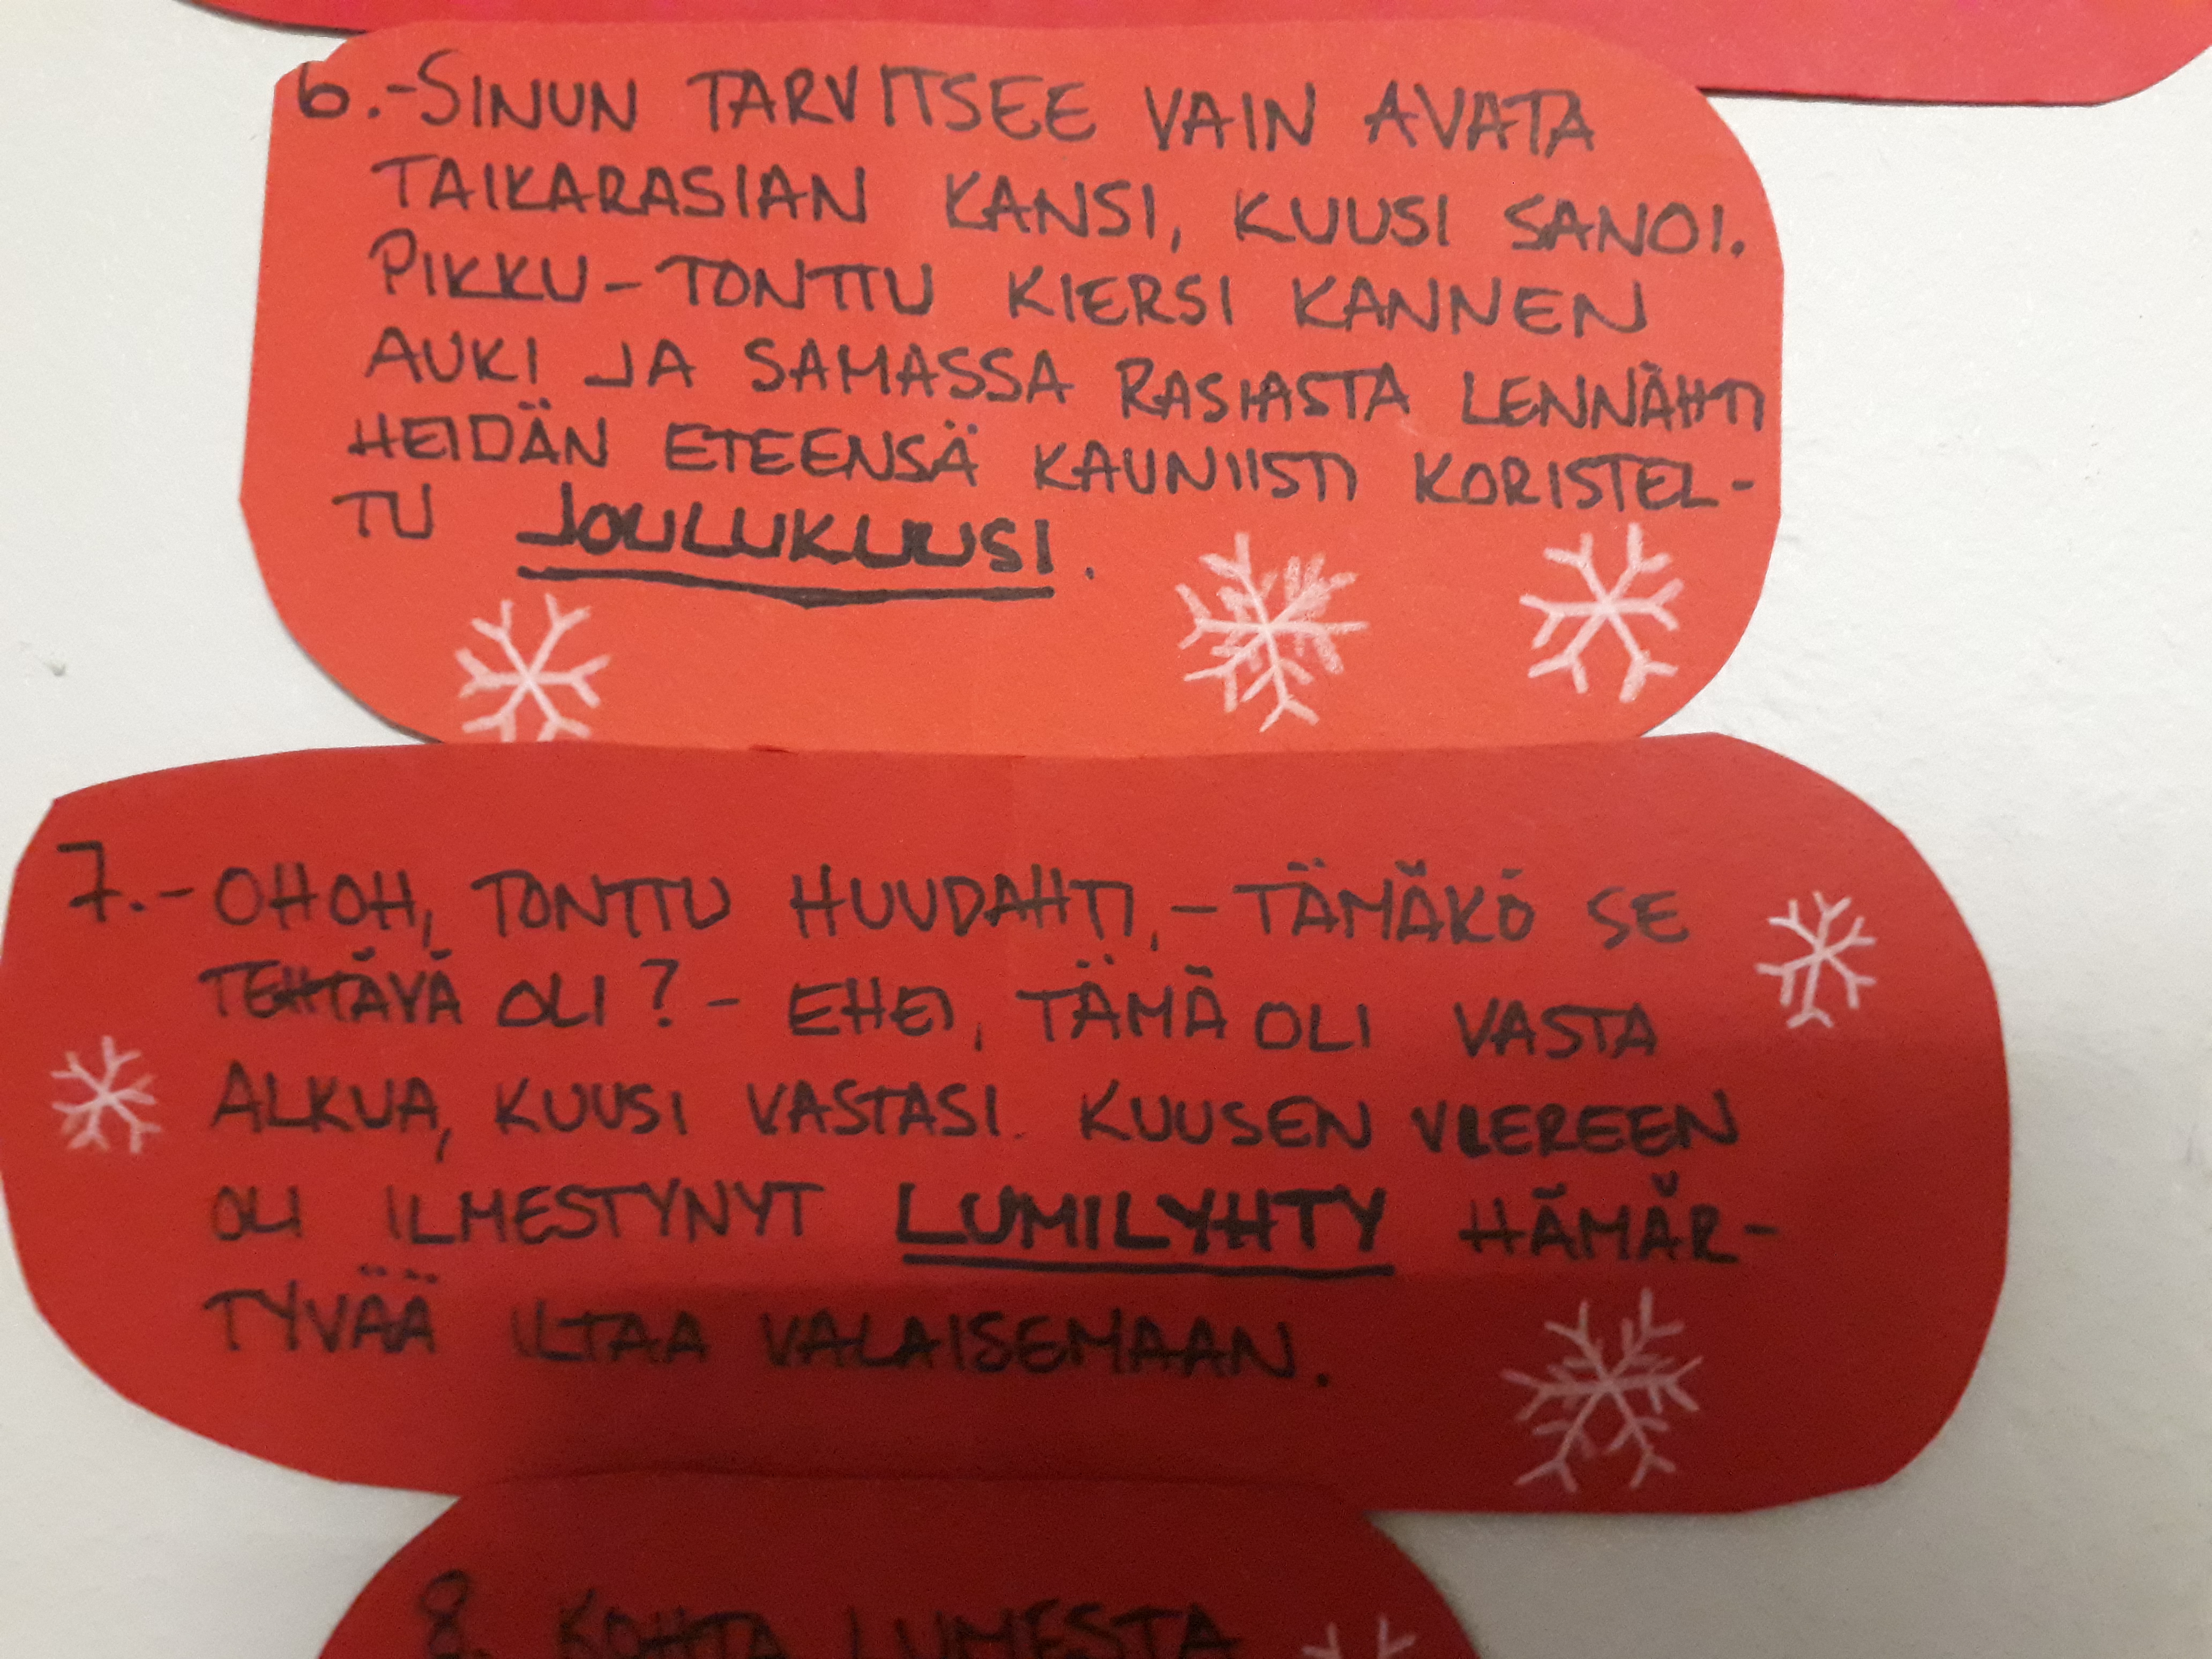 6.-SINUN TARVITSEE VAIN AVATA
TAIKARASIAN KANSI, KUUSI SANOI.
PIKKU-TONTTU KIERSI KANNEN
AUKI JA SAMASSA RASIASTA LENNÄHTI
HEIDÄN ETEENSÄ KAUNIISTI KORISTEL-
TU JOULUKUUSI.
7.-OHOH, TONTTU HUUDAHTI,-TÄMÄKÖ SE
TEHTÄVÄ OLI?- EHEI, TÄMÄ OLI VASTA
ALKUA, KUUSI VASTASI. KUUSEN VIEREEN
OLI ILMESTYNYT LUMILYHTY HÄMÄR-
TYVÄÄ ILTAA VALAISEMAAN.
8. KOHTA LUMESTA